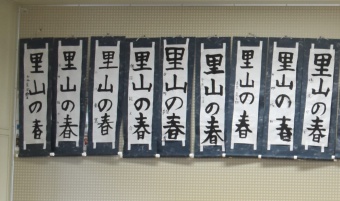 里山の春
里山の春
里山の春
里山の春
里山の春
里山の春
里山の春
里山の春
里山の春